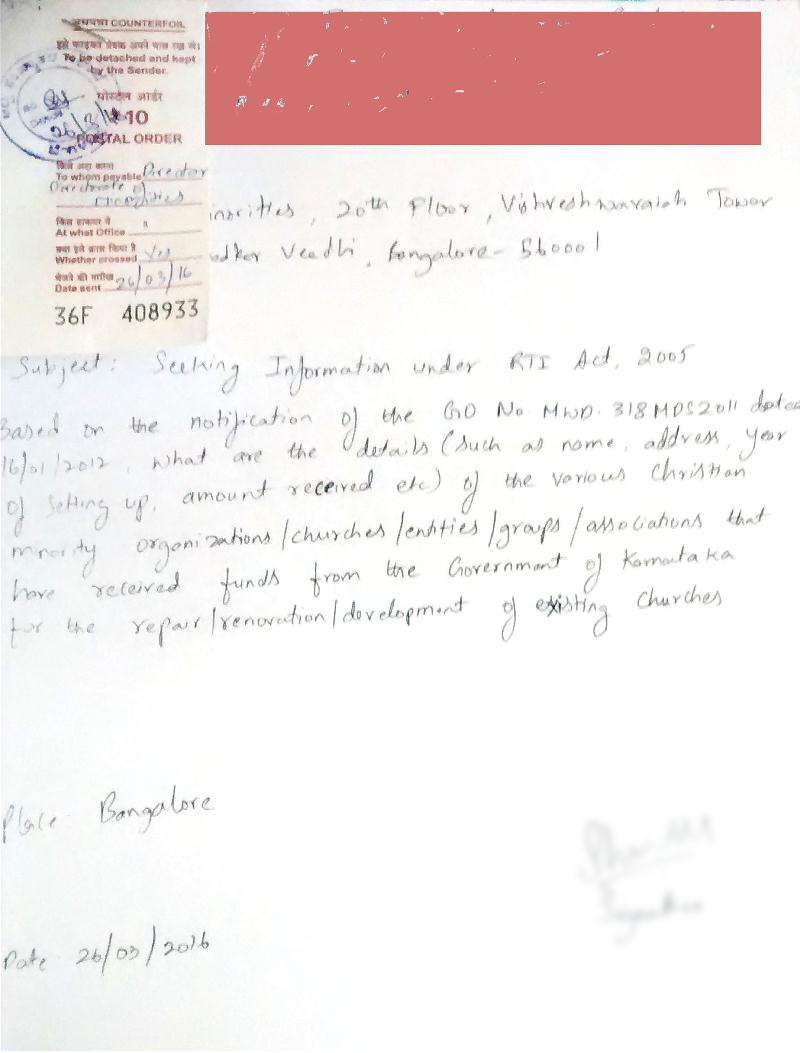 COUNTERFOIL
To be detached and kept
by the Sender.
पोस्टल आर्डर
10
POSTAL ORDER
To whom payable Director
Directorate of
Minorities
At what Office
Whether crossed Yes
Date sent 26/03/16
36F 408933
inorities, 20th Floor, Vishveshwaraiah Tower
edkar Veedhi, Bangalore - 560001
Subject: Seeking Information under RTI Act, 2005
Based on the notification of the GO No MWD. 318 MDS 2011 dated
16/01/2012, what are the details (such as name, address, year
of setting up, amount received etc) of the various Christian
minority organizations/churches/entities/groups/associations that
have received funds from the Government of Karnataka
for the repair/renovation/development of existing churches
Place Bangalore
Date 26/03/2016